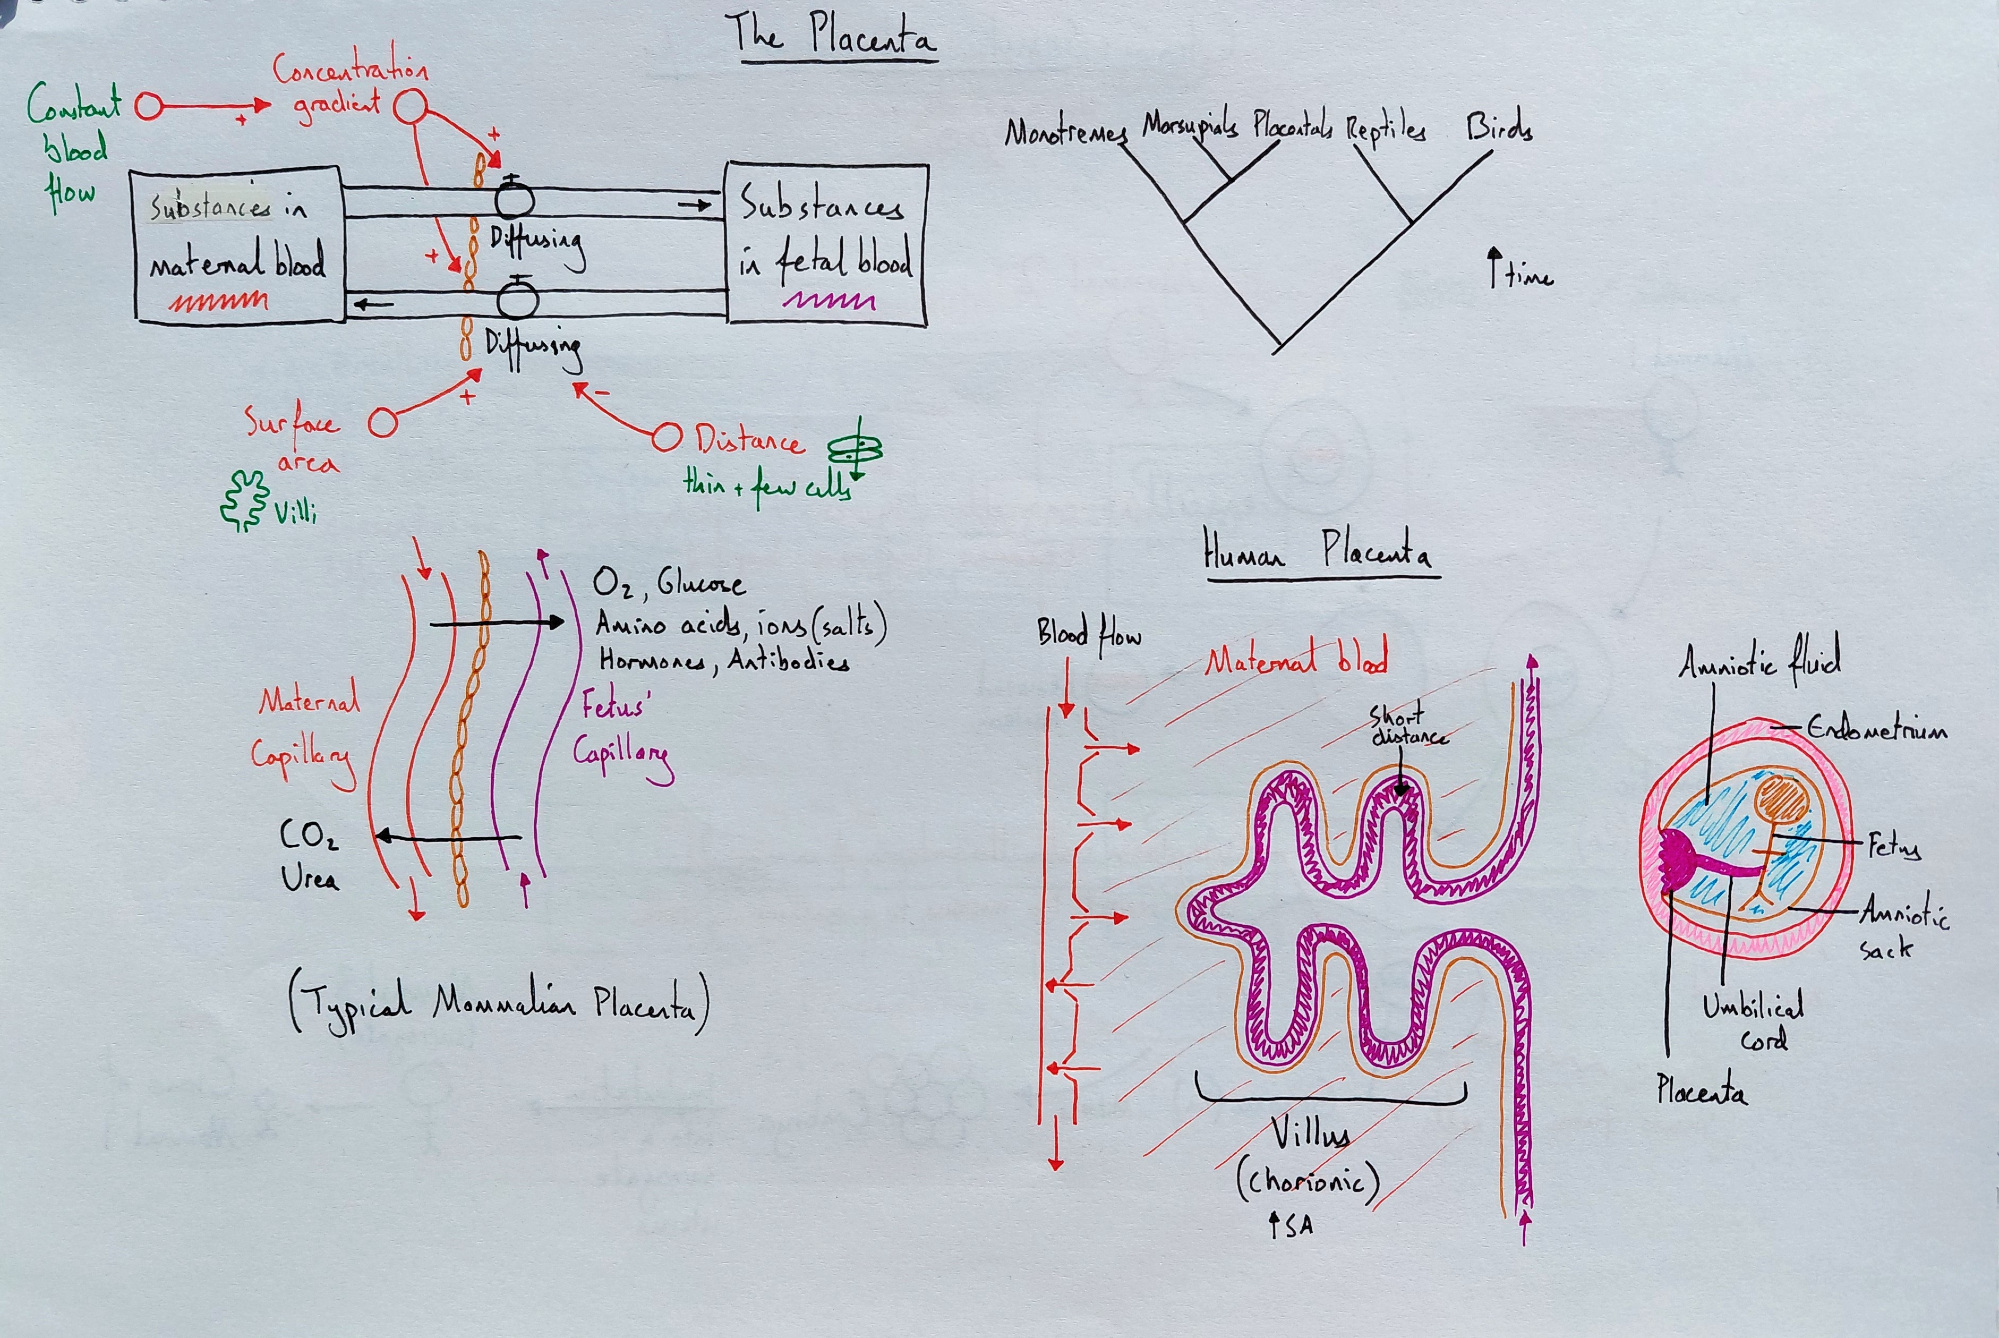 The Placenta
Constant
blood
flow
Concentration
gradient
+
+
+
Substances in
maternal blood
Diffusing
Diffusing
Substances
in fetal blood
Surface
area
+
Villi
-
Distance
thin + few cells
Monotremes Marsupials Placentals Reptiles Birds
time
O₂, Glucose
Amino acids, ions (salts)
Hormones, Antibodies
Maternal
Capillary
Fetus'
Capillary
CO₂
Urea
(Typical Mammalian Placenta)
Human Placenta
Blood flow
Maternal blood
Short
distance
Villus
(Chorionic)
↑SA
Amniotic fluid
Endometrium
Fetus
Amniotic
sack
Umbilical
cord
Placenta